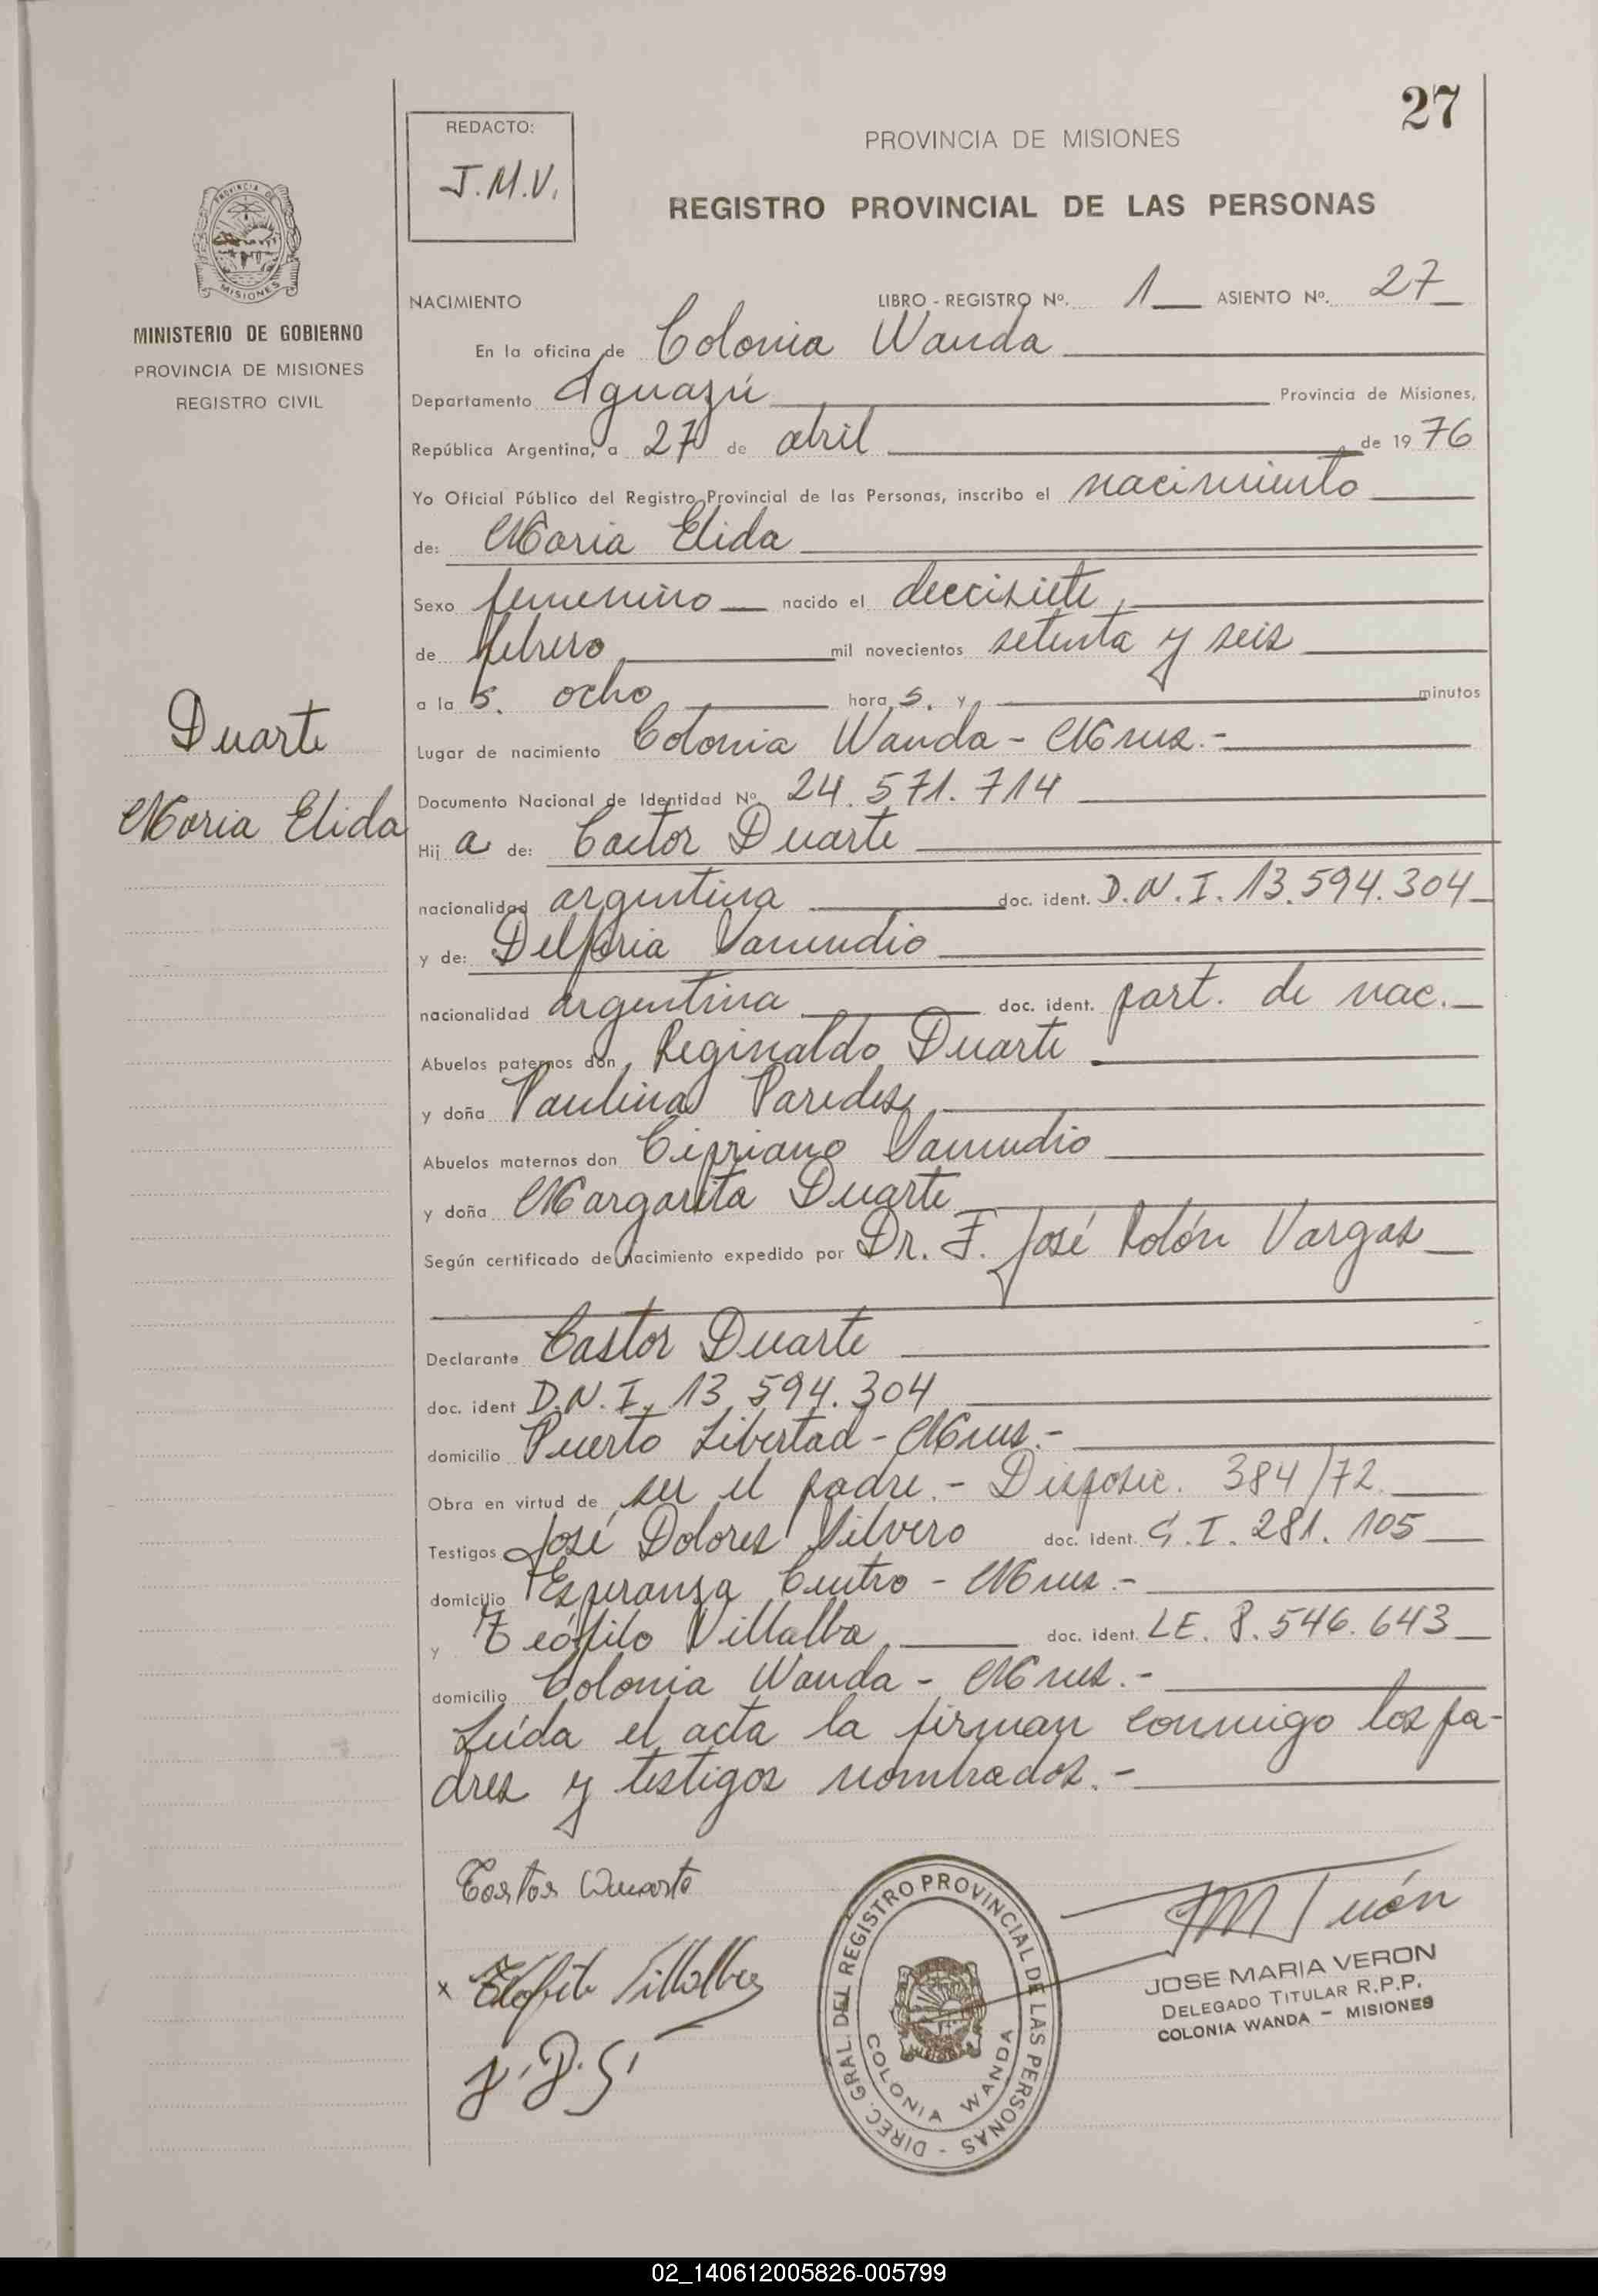 27
REDACTO:
J.M.V.
PROVINCIA DE MISIONES
REGISTRO PROVINCIAL DE LAS PERSONAS
PROVINCIA DE
MISIONES
MINISTERIO DE GOBIERNO
PROVINCIA DE MISIONES
REGISTRO CIVIL
NACIMIENTO LIBRO - REGISTRO Nº. 1 ASIENTO Nº. 27
En la oficina de Colonia Wanda
Departamento Iguazú Provincia de Misiones,
República Argentina, a 27 de abril de 1976
Yo Oficial Público del Registro Provincial de las Personas, inscribo el nacimiento
de: Maria Elida
Sexo femenino nacido el diecisiete
de febrero mil novecientos setenta y seis
a la s. ocho hora s. y minutos
Lugar de nacimiento Colonia Wanda - Mnes.-
Duarte
Maria Elida
Documento Nacional de Identidad Nº 24.571.714
Hij a de: Castor Duarte
nacionalidad argentina doc. ident. D.N.I. 13.594.304
y de: Delfina Samudio
nacionalidad argentina doc. ident. part. de nac.
Abuelos paternos don Reginaldo Duarte
y doña Paulina Paredes
Abuelos maternos don Cipriano Samudio
y doña Margarita Duarte
Según certificado de nacimiento expedido por Dr. F. José Rolón Vargas
Declarante Castor Duarte
doc. ident D.N.I. 13.594.304
domicilio Puerto Libertad - Mnes.-
Obra en virtud de ser el padre.- Disposic. 384/72.
Testigos José Dolores Silvero doc. ident. C.I. 281.105
domicilio Esperanza Centro - Mnes.-
y Teófilo Villalba doc. ident. LE. 8.546.643
domicilio Colonia Wanda - Mnes.-
Leída el acta la firman conmigo los pa-
dres y testigos nombrados.-
Castor Duarte
x Teofilo Villalba
J.D.S.
DIREC. GRAL. DEL REGISTRO PROVINCIAL DE LAS PERSONAS -
COLONIA WANDA
JOSE MARIA VERON
DELEGADO TITULAR R.P.P.
COLONIA WANDA - MISIONES
02_140612005826-005799